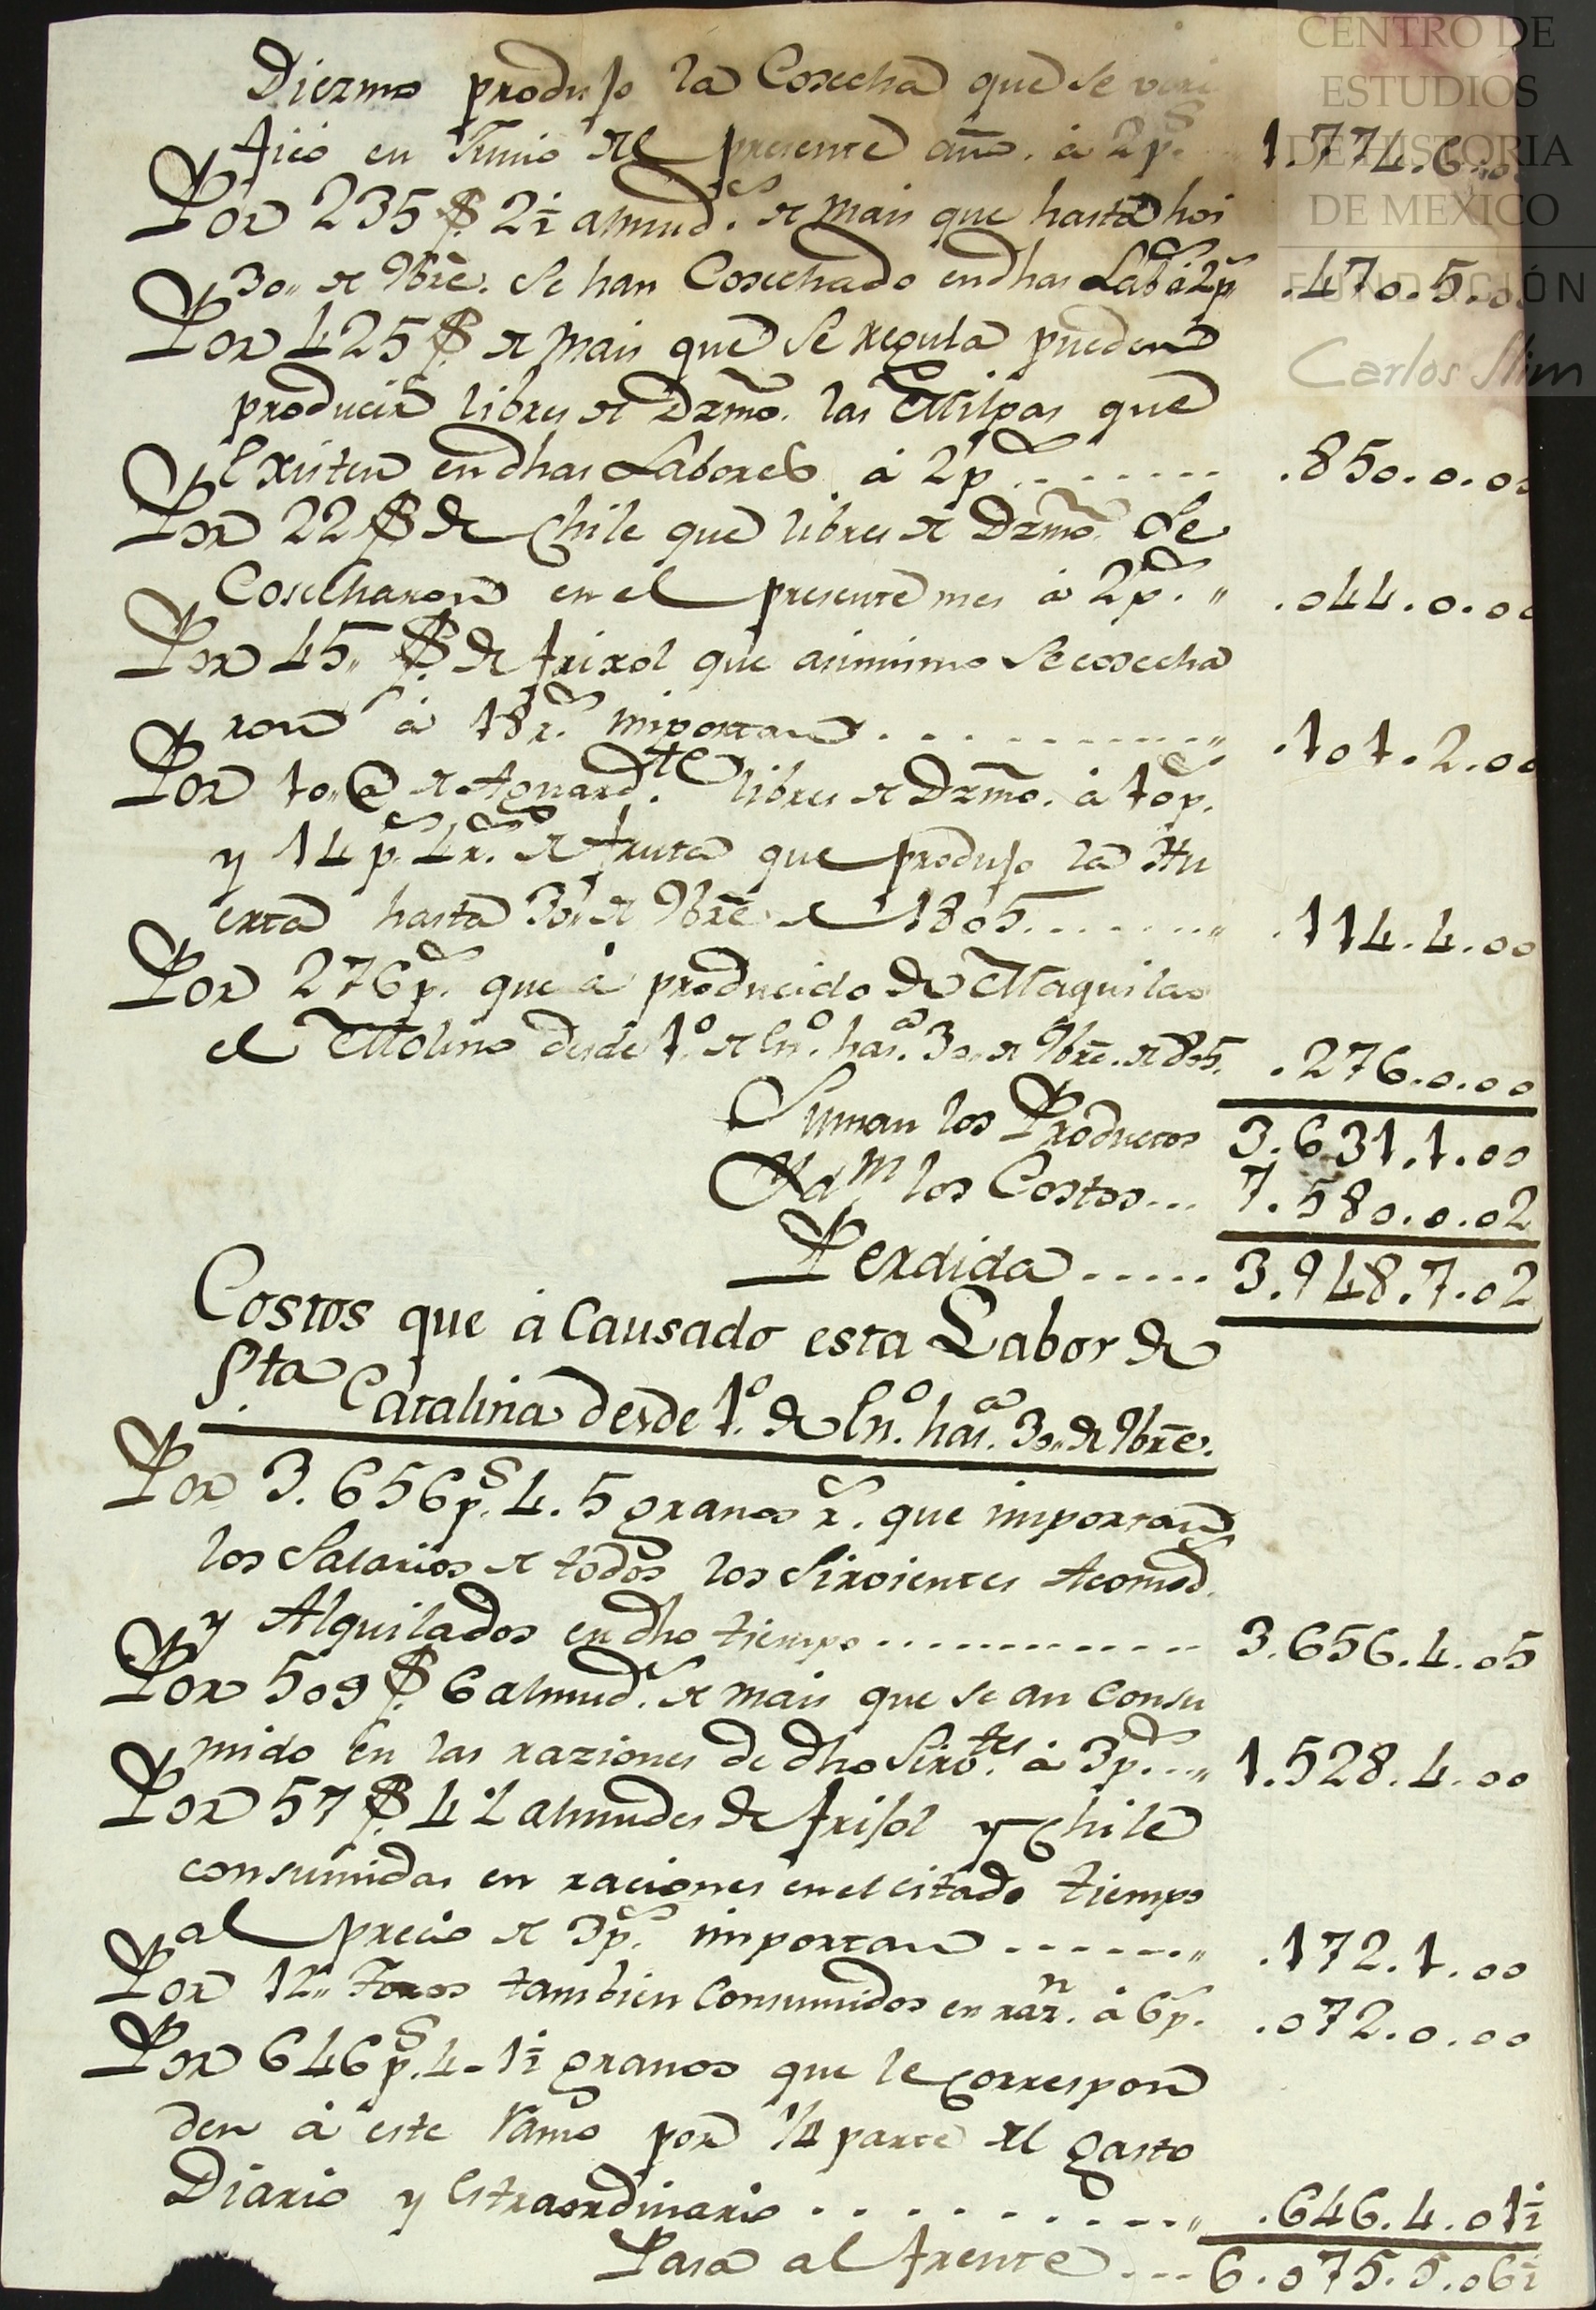 Diezmo produjo la Cosecha que se veri
ficó en Junio del presente año. á 2 p.s 1.774.6.00
Por 235 $. 2½ almud.s de mais que hasta hoi
30,, de 9bre. se han Cosechado en dhas Lab.s á 2 p.s .470.5.00
Por 425 $. de mais que se regula pueden
producir libres de Dzmo. las Milpas que
Existen en dhas Labores á 2 p.s ....... .850.0.00
Por 22 $ de Chile que libres de Dzmo. se
Cosecharon en el presente mes á 2 p.s ,, .044.0.00
Por 45,, $. de frixol que asimismo se cosecha
ron á 18 r.s importan ............,, .101.2.00
Por 10,, @ de Aguard.te libres de Dzmo. á 10 p.s
y 14 p.s 4 r.s de fruta que produjo la Hu
erta hasta 30,, de 9bre de 1805.......,, .114.4.00
Por 276 p.s que á producido de Maquilas
el Molino desde 1.o de En.o has.a 30,, de 9bre. de 805. .276.0.00
Suman los Productos 3.631.1.00
Yd.m los Costos... 7.580.0.02
Perdida..... 3.948.7.02
Costos que á Causado esta Labor de
S.ta Catalina desde 1.o de En.o has.a 30,, de 9bre.
Por 3.656 p.s 4. 5 granos r.s que importan
los Salarios de todos los Sirvientes Acomod.s
y Alquilados en dho tiempo............. 3.656.4.05
Por 509 $. 6 almud.s de mais que se an consu
mido en las raziones de dho Sirv.tes á 3 p.s ..,, 1.528.4.00
Por 57 $. 4½ almudes de frisol y Chile
consumidas en raciones en el citado tiempo
al precio de 3 p.s importan .......,, .172.1.00
Por 12,, Toros tambien Consumidos en raz.n á 6 p.s .072.0.00
Por 646 p.s 4-1½ granos que le correspon
den á este Ramo por ¼ parte del gasto
Diario y Estraordinario ..........,, .646.4.01½
Pasa al frente ... 6.075.5.06½
CENTRO DE
ESTUDIOS
DE HISTORIA
DE MEXICO
FUNDACIÓN
Carlos Slim